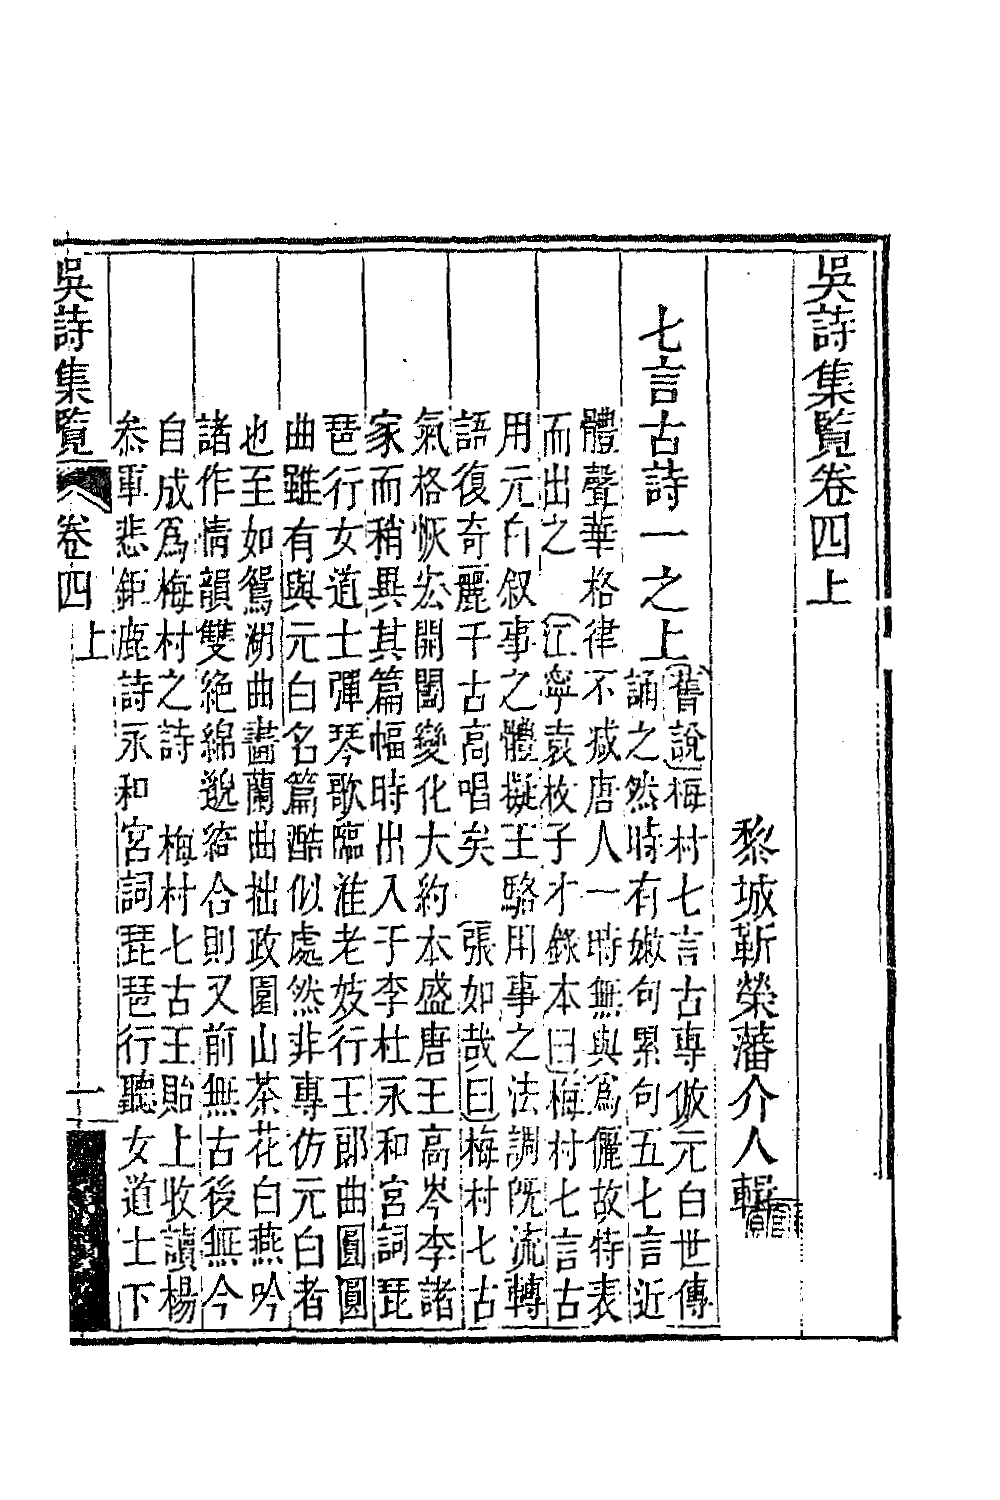 吳詩集覽卷四上
黎城靳榮藩介人輯
七言古詩一之上
舊說梅村七言古專倣元白世傳
誦之然時有嫩句累句五七言近
體聲華格律不减唐人一時無與爲儷故特表
而出之 江寧袁枚子才錄本曰梅村七言古
用元白叙事之體擬王駱用事之法調旣流轉
語復奇麗千古高唱矣 張如哉曰梅村七古
氣格恢宏開闔變化大約本盛唐王高岑李諸
家而稍異其篇幅時出入于李杜永和宮詞琵
琶行女道士彈琴歌臨淮老妓行王郎曲圓圓
曲雖有與元白名篇酷似處然非專仿元白者
也至如鴛湖曲畵蘭曲拙政園山茶花白燕吟
諸作情韻雙絶綿邈綺合則又前無古後無今
自成爲梅村之詩 梅村七古王貽上收讀楊
叅軍悲鉅鹿詩永和宮詞琵琶行聽女道士卞
吳詩集覽 卷四上 一